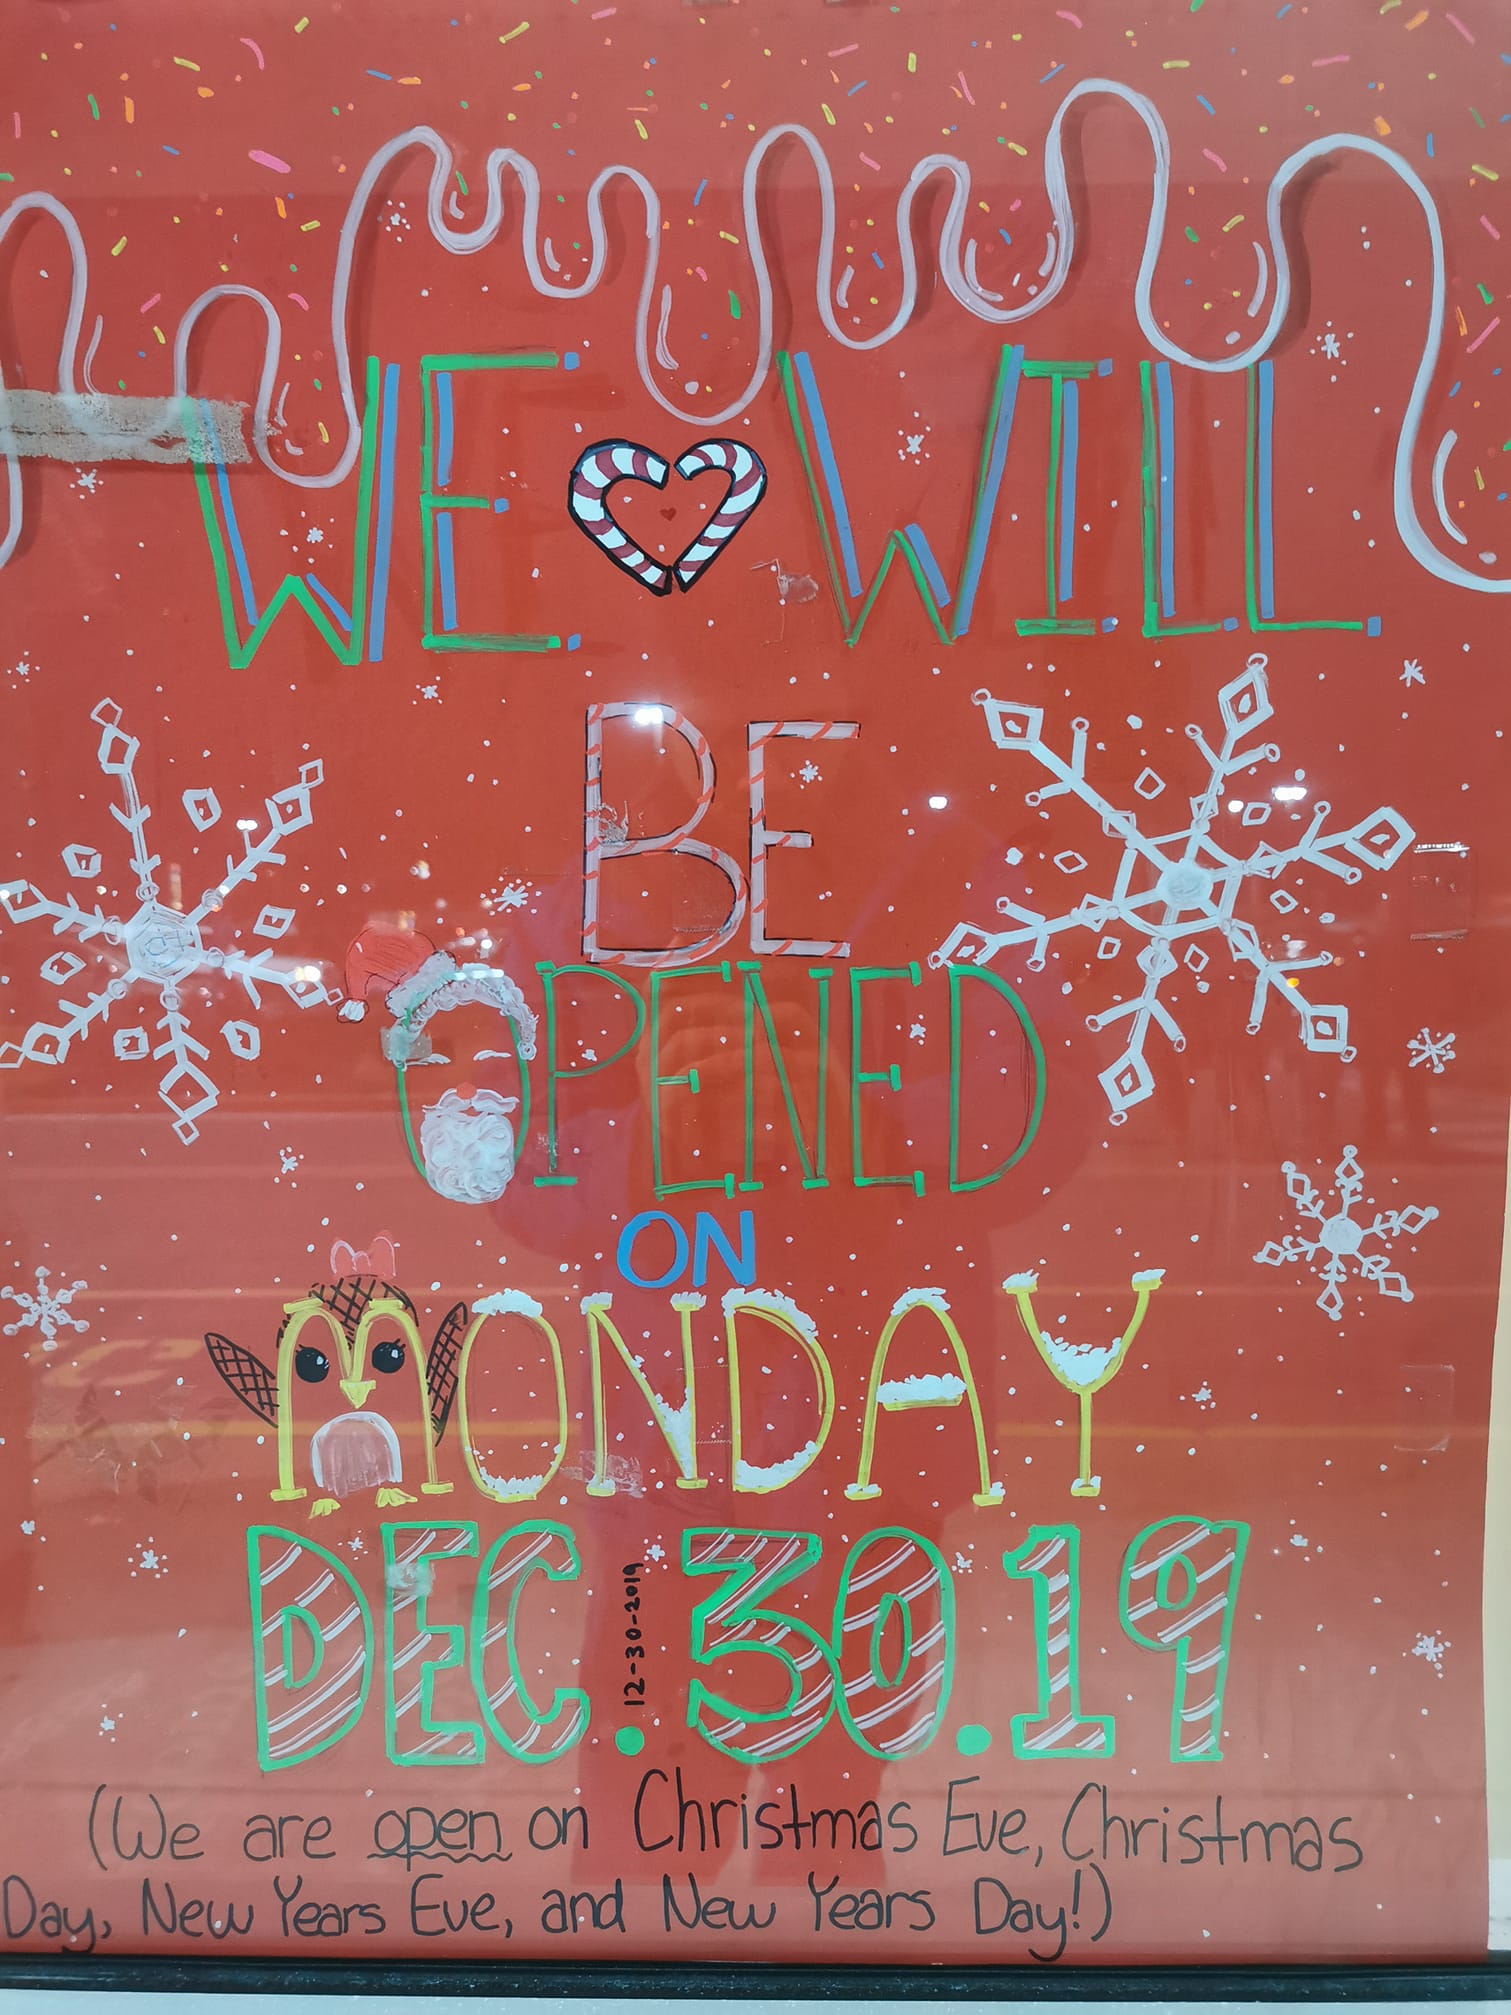 WE WILL
BE
OPENED
ON
MONDAY
DEC. 30.19
12-30-2019
(We are open on Christmas Eve, Christmas
Day, New Years Eve, and New Years Day!)